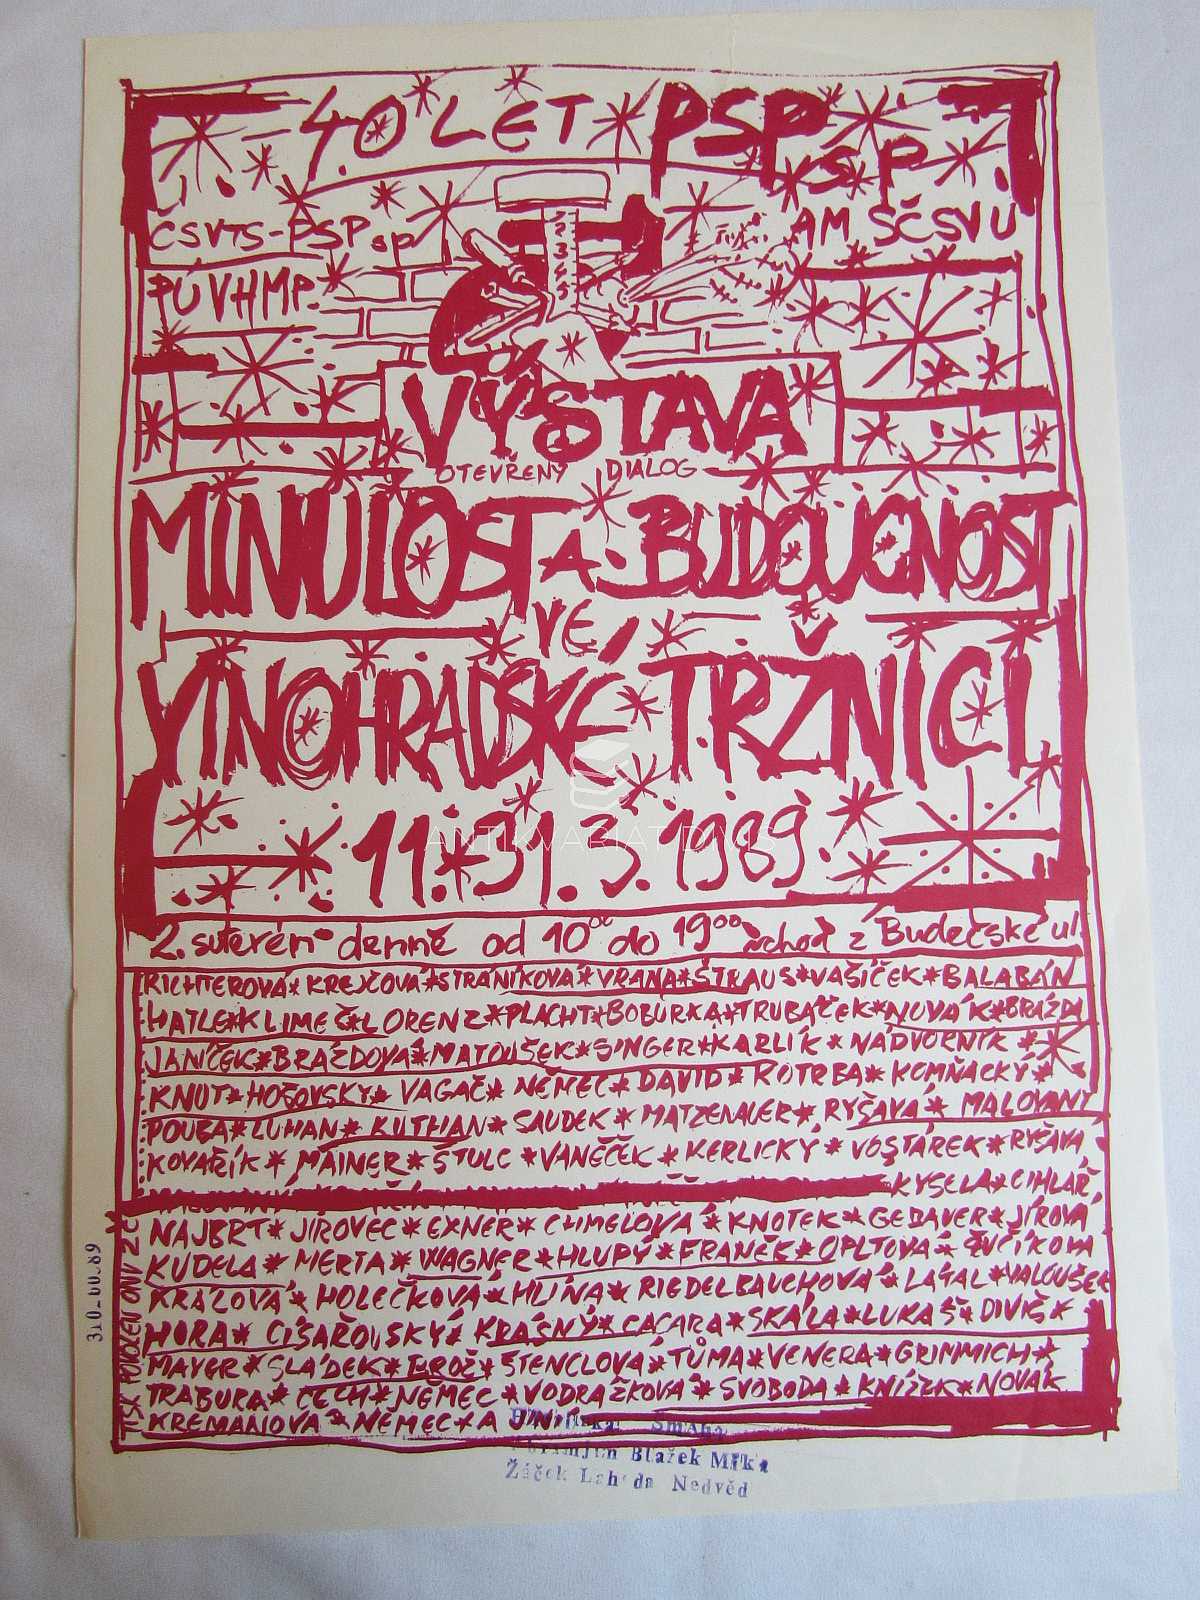 40 LET PSP
ŠP
ČSVTS-PSP ŠP
AM SČSVU
PÚVHMP
VÝSTAVA
OTEVŘENÝ DIALOG
MINULOST A BUDOUCNOST
VE
VINOHRADSKÉ TRŽNICI
11.*31.3.1989
2. suterén denně od 10⁰⁰ do 19⁰⁰ vchod z Budečské ul.
RICHTEROVÁ * KREJČOVÁ * STRÁNÍKOVÁ * VRANA * ŠTRAUS * VAŠÍČEK * BALABÁN
HATLE * KLIMEČ * LORENZ * PLACHT * BOBŮRKA * TRUBÁČEK * NOVÁK * BRÁZDA
JANÍČEK * BRÁZDOVÁ * MATOUŠEK * SINGER * KARLÍK * NÁDVORNÍK *
KNUT * HOŠOVSKÝ * VAGAČ * NĚMEC * DAVID * KOTRBA * KOMŇACKÝ *
POUBA * LUHAN * KUTHAN * SAUDEK * MATZENAUER * RYŠAVÁ * MALOVANÝ
KOVAŘÍK * MAINER * ŠTULC * VANĚČEK * KERLICKÝ * VOSTÁREK * RYŠAVÁ
KYSELA * CIHLÁŘ
NAJBRT * JÍROVEC * EXNER * CHMELOVÁ * KNOTEK * GEBAUER * JÍROVÁ
KUDELA * MERTA * WAGNER * HLUPÝ * FRANĚK * OPLTOVÁ *
KRÁLOVÁ * HOLEČKOVÁ * HLÍNA * RIEDELBAUCHOVÁ * LÁTAL * VALOUŠEK
HORA * CÍSAŘOVSKÝ * KRÁSNÝ * CACARA * SKÁLA * LUKÁŠ * DIVIŠ *
MAYER * SLÁDEK * BROŽ * ŠTENCLOVÁ * TŮMA * VENERA * GRIMMICH *
TRABURA * ČECH * NĚMEC * VODRÁŽKOVÁ * SVOBODA * KNÍŽEK * NOVÁK
KREMANOVÁ * NĚMEC * A JINÍ
Smaha
Blažek
Žáček Lahoda Nedvěd
TISK POVOLEN ONV
ANTIKVARIÁT DIVIŠ